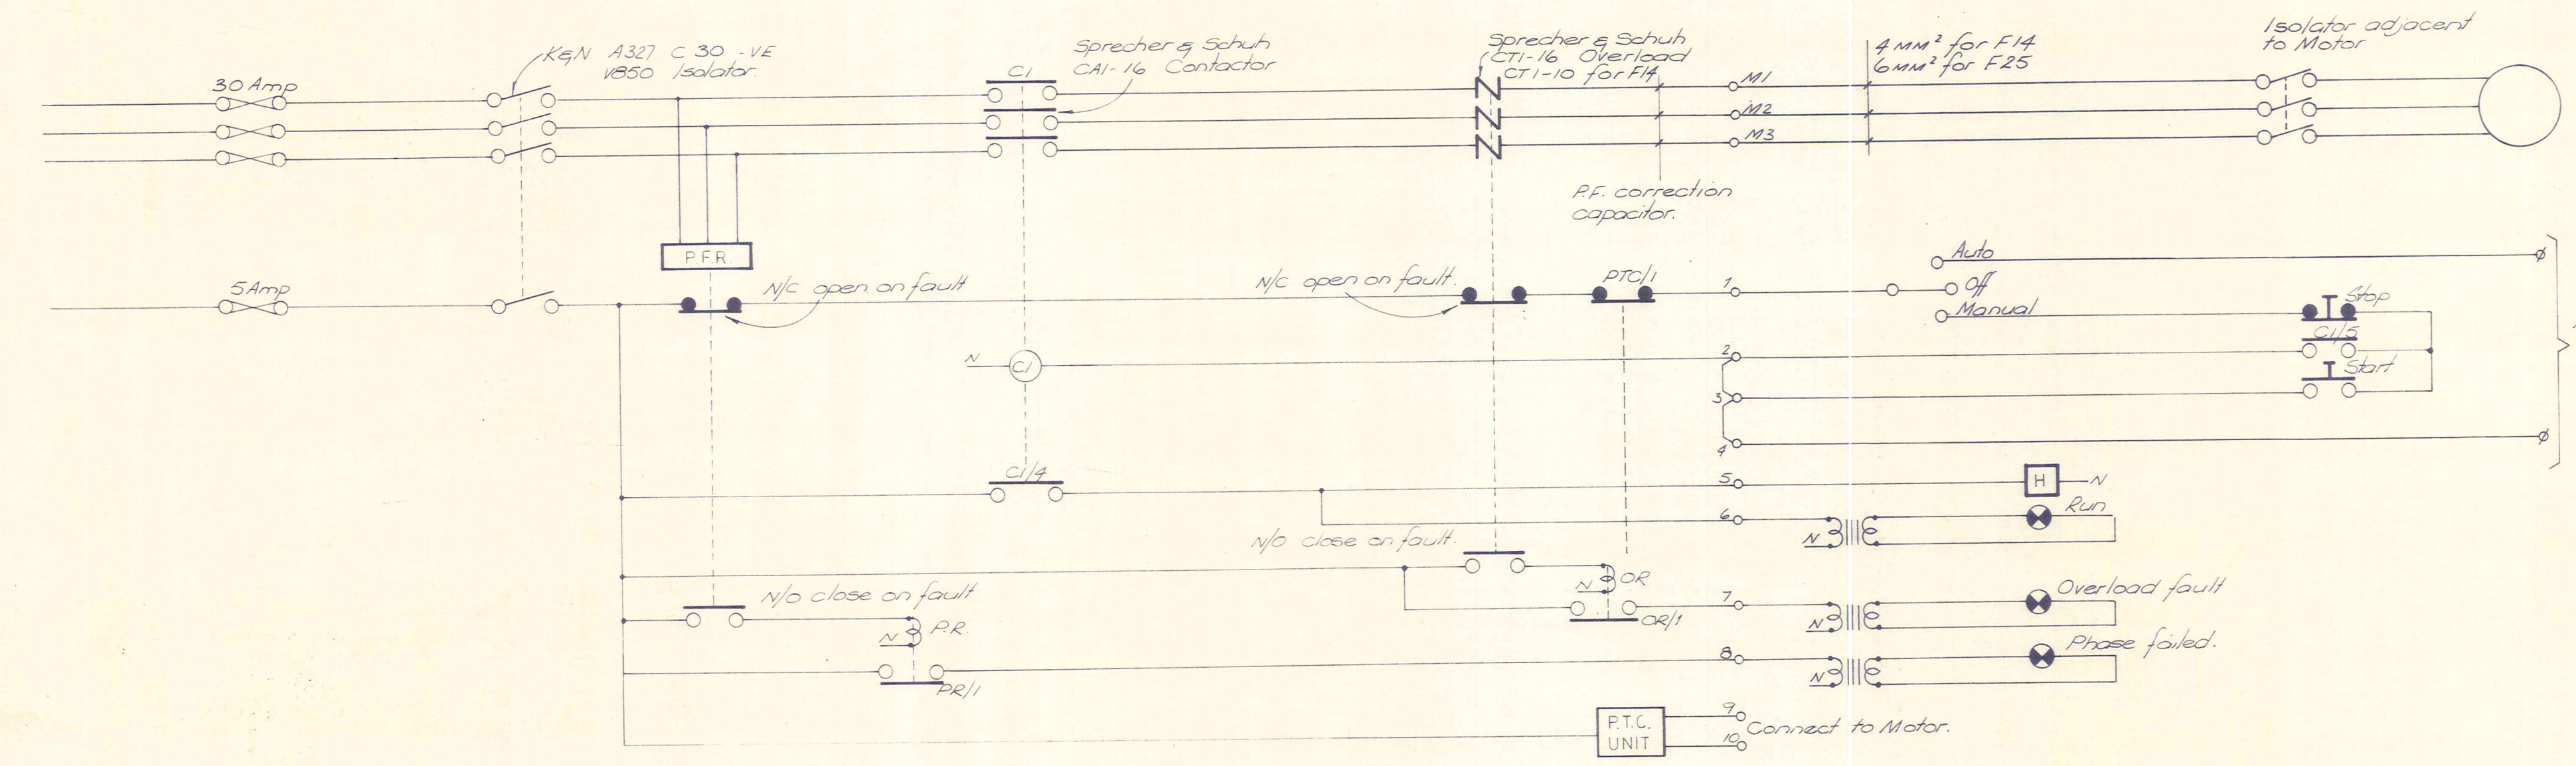 K&N A327 C 30 -VE
VB50 Isolator.
Sprecher & Schuh
CA1-16 Contactor
Sprecher & Schuh
CT1-16 Overload
CT1-10 for F14
4 MM² for F14
6 MM² for F25
Isolator adjacent
to Motor
30 Amp
C1
M1
M2
M3
P.F. correction
capacitor.
P.F.R.
5 Amp
N/C open on fault
N/C open on fault.
PTC/1
1
Auto
Off
Manual
Stop
C1/5
Start
N
C1
2
3
4
C1/4
5
H
N
6
Run
N
N/O close on fault.
N
OR
7
OR/1
N
Overload fault
N/O close on fault
N
P.R.
PR/1
8
N
Phase failed.
P.T.C.
UNIT
9
10
Connect to Motor.